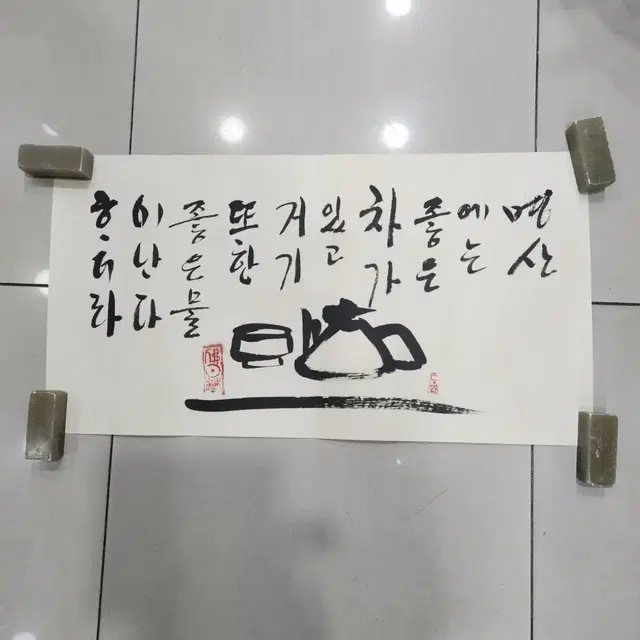 명산
에는
좋은
차가
있고
거기
또한
좋은물
이난다
ᄒᆞ더라